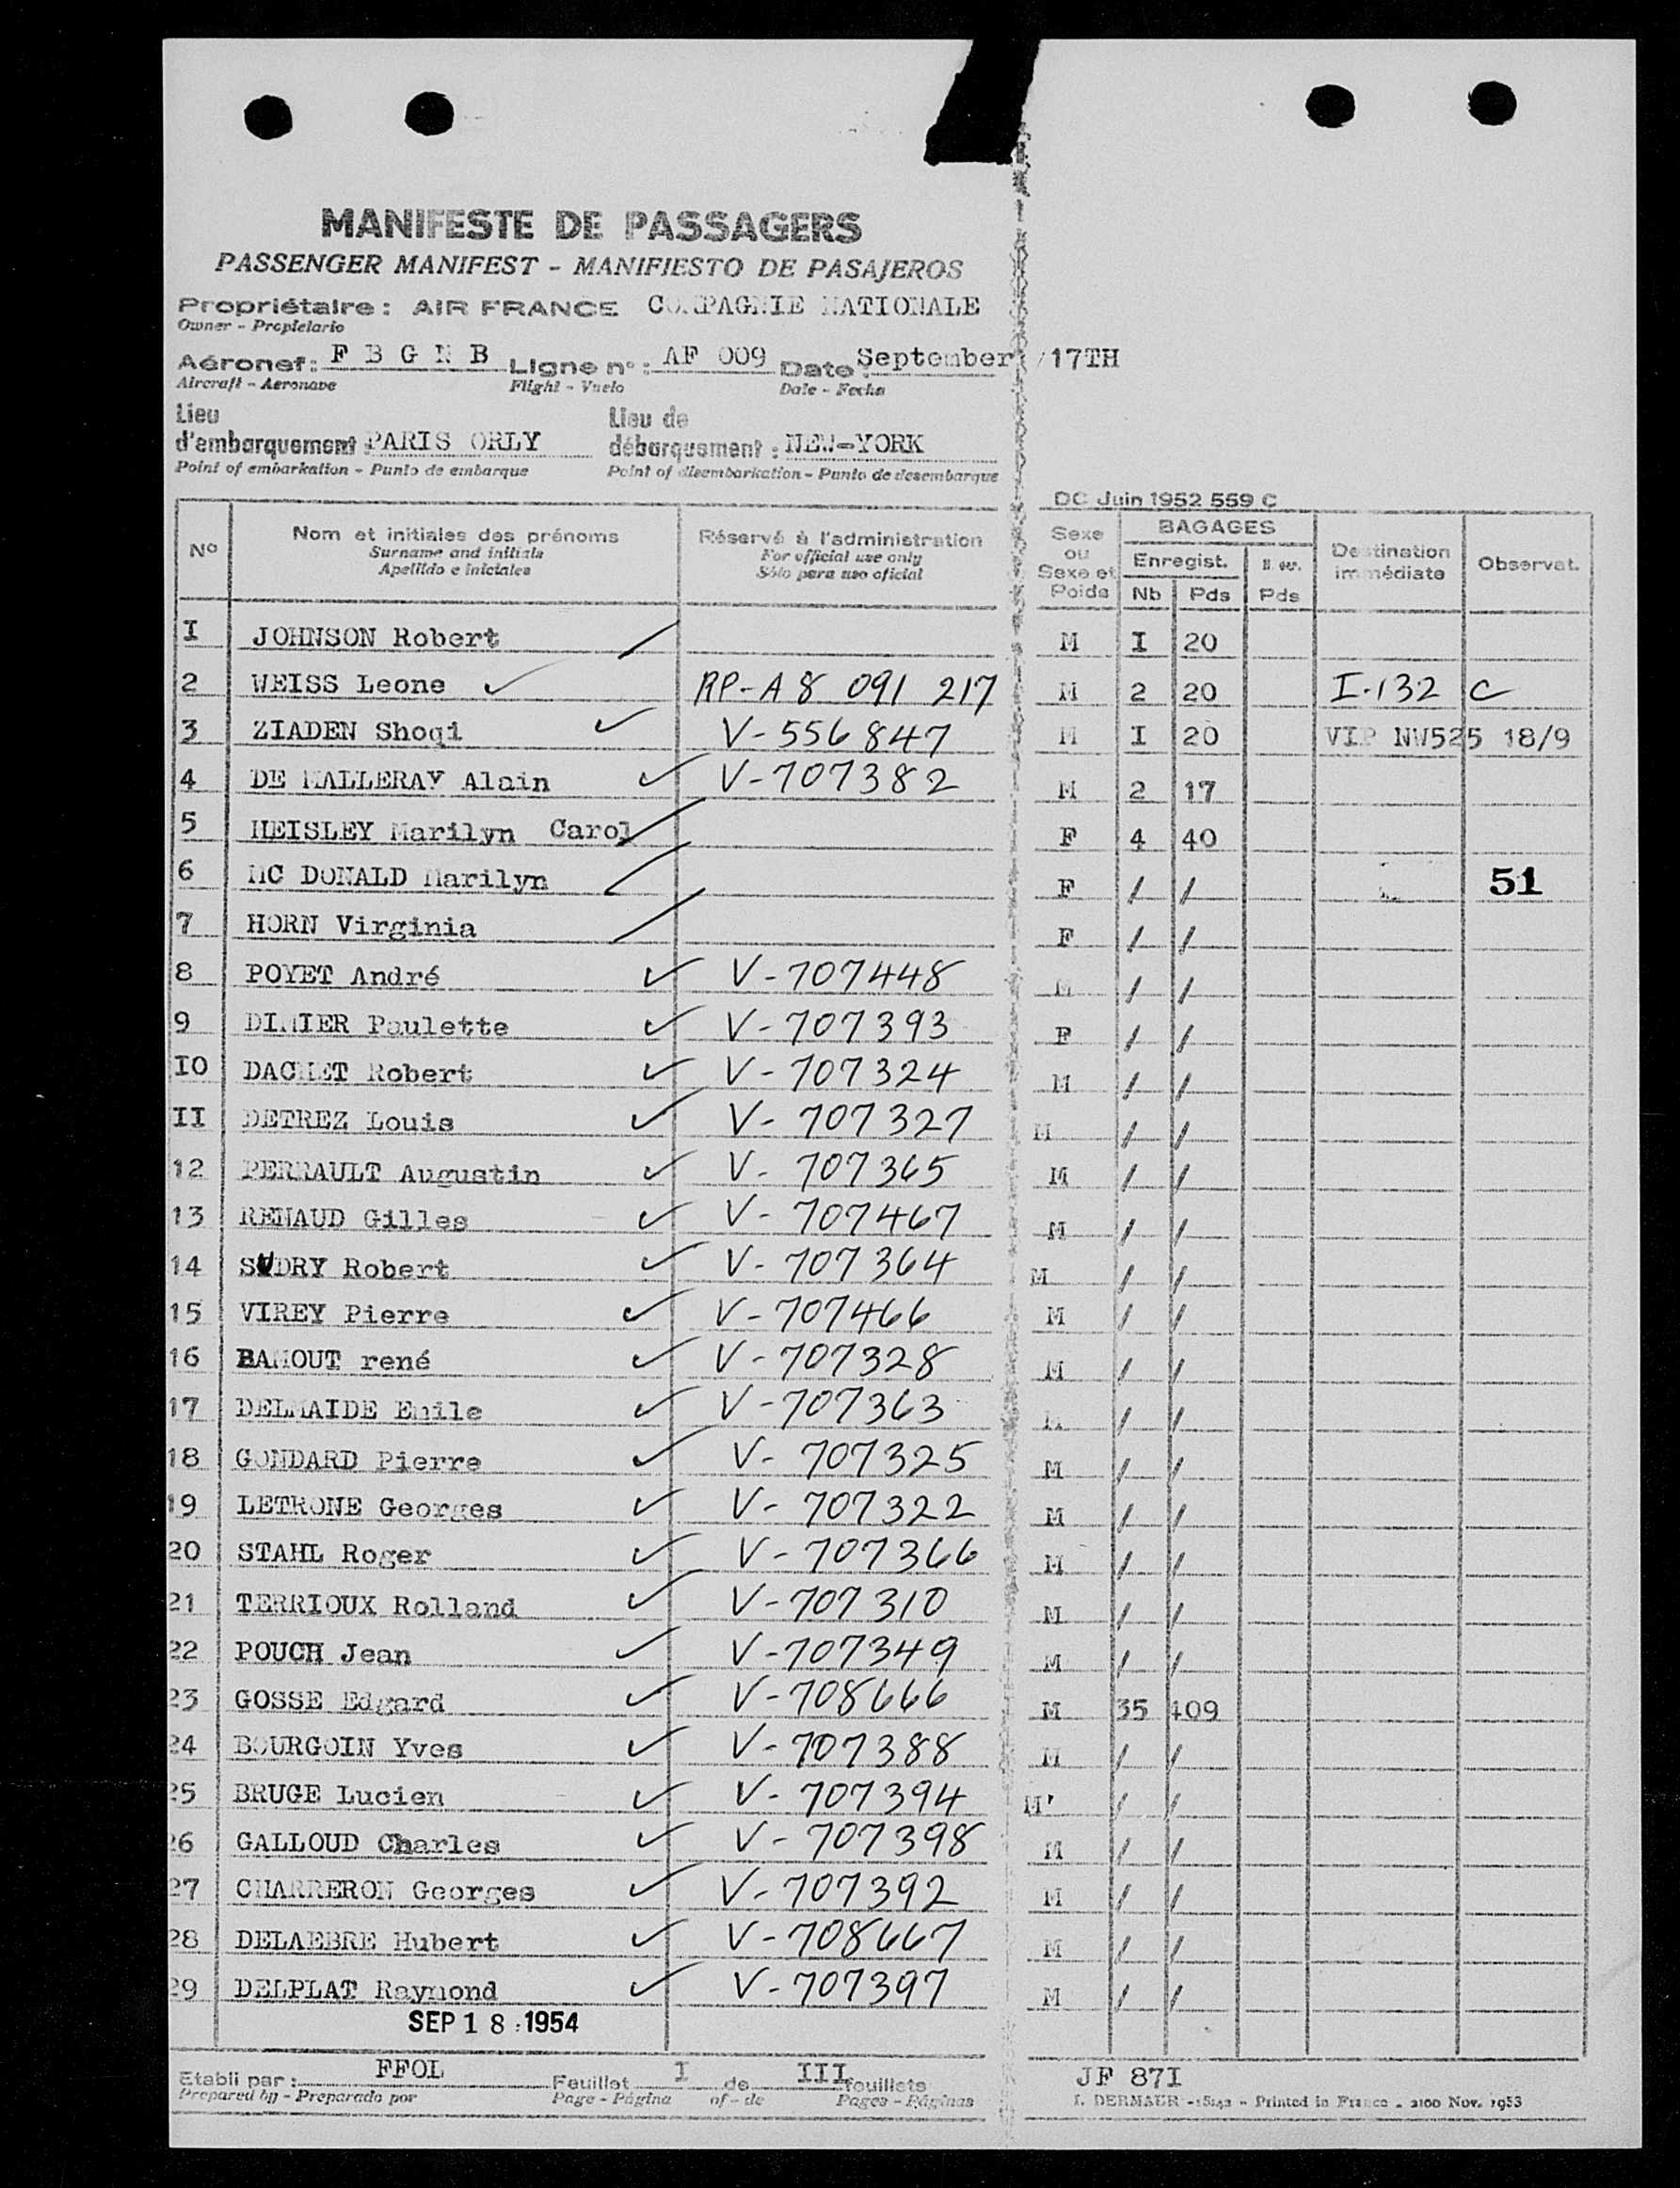 MANIFESTE DE PASSAGERS
PASSENGER MANIFEST - MANIFIESTO DE PASAJEROS
Propriétaire : AIR FRANCE COMPAGNIE NATIONALE
Owner - Propietario
Aéronef : F B G N B Ligne n° : AF 009 Date : September 17TH
Aircraft - Aeronave Flight - Vuelo Date - Fecha
Lieu d'embarquement : PARIS ORLY Lieu de débarquement : NEW-YORK
Point of embarkation - Punto de embarque Point of disembarkation - Punto de desembarque
DC Juin 1952 559 C
N° Nom et initiales des prénoms Réservé à l'administration Sexe ou Sexe et Poids BAGAGES Enregist. Nb Pds Pds Destination immédiate Observat.
Surname and initials For official use only
Apellido e iniciales Sólo para uso oficial
I JOHNSON Robert M I 20
2 WEISS Leone RP-A8 091 217 M 2 20 I-132 C
3 ZIADEN Shoqi V-556847 M I 20 VIP NW525 18/9
4 DE MALLERAY Alain V-707382 M 2 17
5 HEISLEY Marilyn Carol F 4 40
6 MC DONALD Marilyn F / / 51
7 HORN Virginia F / /
8 POYET André V-707448 M / /
9 DINIER Paulette V-707393 F / /
IO DACHET Robert V-707324 M / /
II DETREZ Louis V-707327 M / /
12 PERRAULT Augustin V-707365 M / /
13 RENAUD Gilles V-707467 M / /
14 SUDRY Robert V-707364 M / /
15 VIREY Pierre V-707466 M / /
16 BAMOUT rené V-707328 M / /
17 DELMAIDE Emile V-707363 M / /
18 GONDARD Pierre V-707325 M / /
19 LETRONE Georges V-707322 M / /
20 STAHL Roger V-707366 M / /
21 TERRIOUX Rolland V-707310 M / /
22 POUCH Jean V-707349 M / /
23 GOSSE Edgard V-708666 M 35 409
24 BOURGOIN Yves V-707388 M / /
25 BRUGE Lucien V-707394 M' / /
26 GALLOUD Charles V-707398 M / /
27 CHARRERON Georges V-707392 M / /
28 DELAEBRE Hubert V-708667 M / /
29 DELPLAT Raymond V-707397 M / /
SEP 18 1954
Etabli par : FFOL Feuillet I de III feuillets JF 87I
Prepared by - Preparado por Page - Página of - de Pages - Páginas DERMAUR - Printed in France - 2100 Nov. 1953